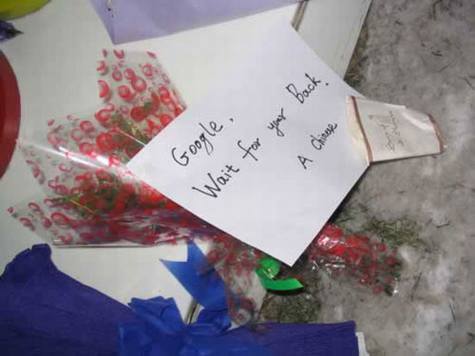 Google,
Wait for your Back!
A Chinese